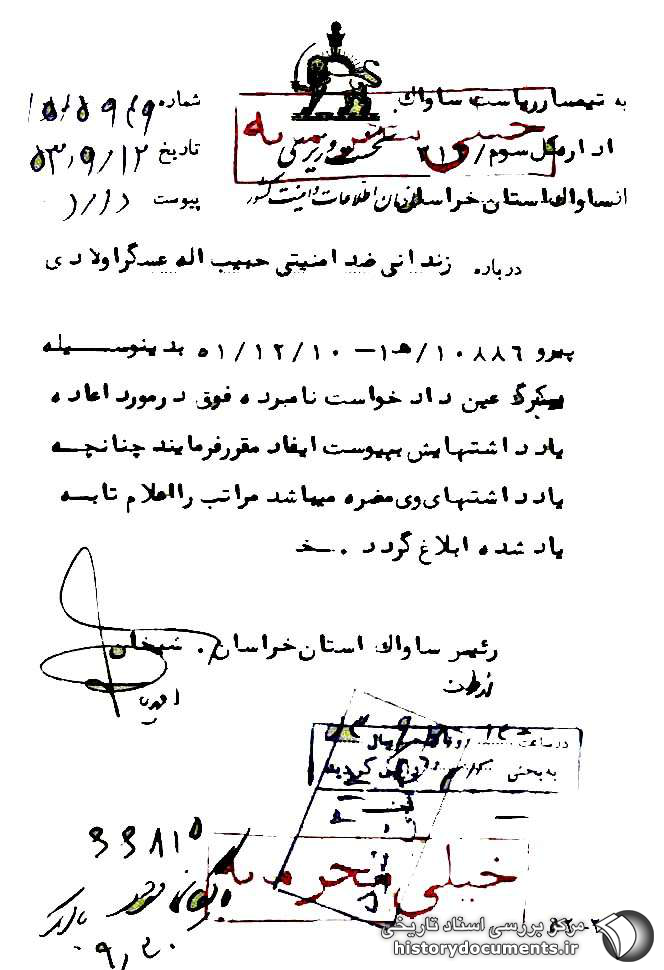 به تیمسار ریاست ساواک
شماره
خیلی محرمانه
اداره کل سوم/۳۱۶
نخست وزیری
تاریخ ۵۳/۹/۱۲
از ساواک استان خراسان
سازمان اطلاعات و امنیت کشور
پیوست دارد
درباره زندانی ضد امنیتی حبیب اله عسگراولادی
پیرو ۱۰۸۸۶/ه‍ ۱–۵۱/۱۲/۱۰ بدینوسیله
یکبرگ عین دادخواست نامبرده فوق درمورد اعاده
یادداشتهایش بپیوست ایفاد مقررفرمایند چنانچه
یادداشتهای وی مضره میباشد مراتب رااعلام تابه
یادشده ابلاغ گردد .خ
رئیس ساواک استان خراسان . شیخان
در ساعت روز سال
به بخش گردید
۳۳۸۱۵
خیلی محرمانه
مرکز بررسی اسناد تاریخی
historydocuments.ir